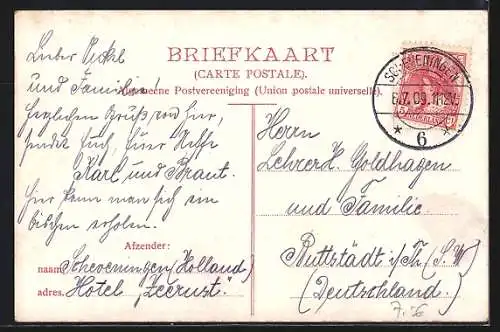 Lieber Onkel
und Familie!
herzlichen Gruß von hier,
sendet Euch, Euer Neffe
Karl und Braut.
hier kann man sich ein
bischen erholen.
BRIEFKAART
(CARTE POSTALE).
Algemeene Postvereeniging (Union postale universelle).
SCHEVENINGEN
6.7.09. 11-12V.
* 6 *
Herrn
Lehrer H. Goldhagen
und Familie.
Buttstädt i/Th. (S. W.)
(Deutschland.)
Afzender:
naam: Scheveningen (Holland)
adres. Hotel "Zeerust".